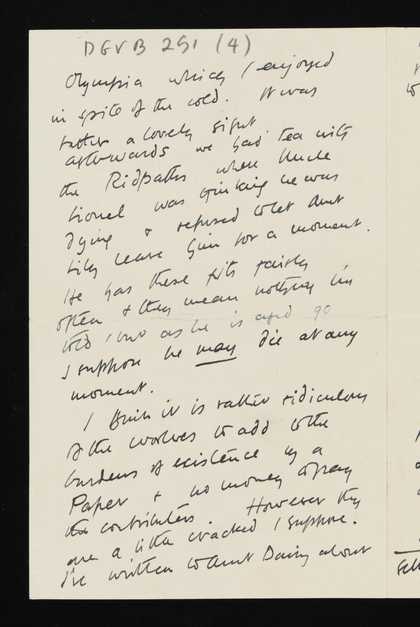 DGVB 251 (4)
Olympia which I enjoyed
in spite of the cold. It was
rather a lovely sight
afterwards we had tea with
the Ridpaths where Uncle
Lionel was thinking he was
dying & refused to let Aunt
Lily leave him for a moment.
He has these fits fairly
often & they mean nothing I'm
told, but as he is aged 90
I suppose he may die at any
moment.
I think it is rather ridiculous
of the Woolves to add to the
burdens of existence by a
Paper & no money to pay
the contributors. However they
are a little cracked I suppose.
I've written to Aunt Daisy about